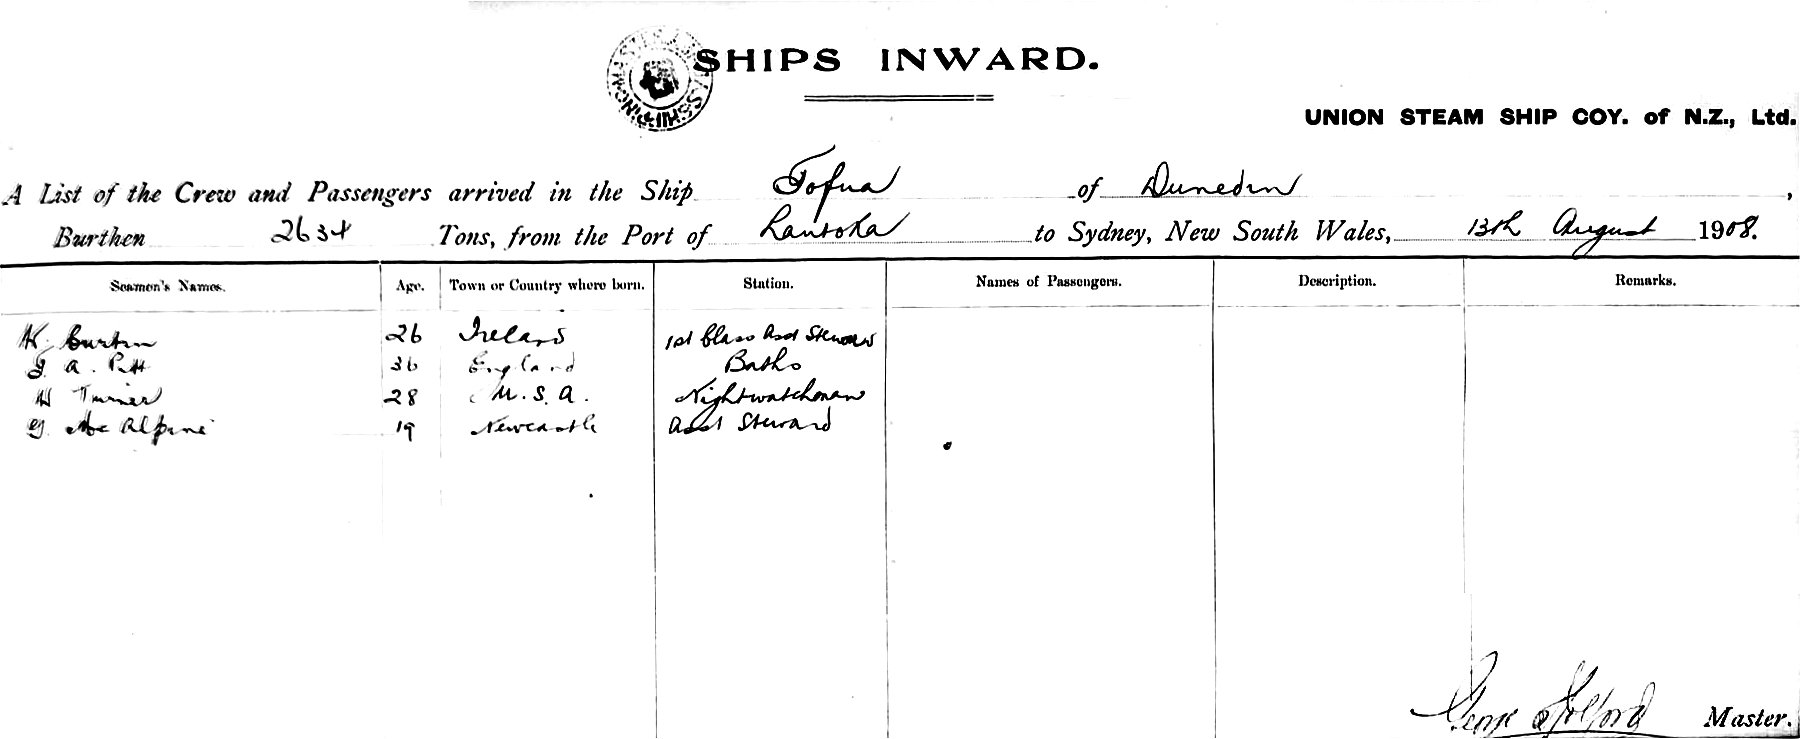 SHIPS INWARD.
UNION STEAM SHIP COY. of N.Z., Ltd.
A List of the Crew and Passengers arrived in the Ship Tofua of Dunedin,
Burthen 2634 Tons, from the Port of Lautoka to Sydney, New South Wales, 13th August 1908.
Seamen's Names. Age. Town or Country where born. Station. Names of Passengers. Description. Remarks.
26 Ireland 1st Class Asst Steward
G. A. Pitt 36 England Baths
H Turner 28 U.S.A. Nightwatchman
G. McAlpine 19 Newcastle Asst Steward
George Master.